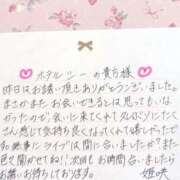 ホテルシーの貴方様
昨日はお誘い頂きありがとうございました。
まさかまたお会いできるとは思ってもいな
かったので、会いに来てくれて
さん感じて気持ち良くなってくれて嬉しかったで
和無事にライブは間に合いましたか？また
色々聞かせて下さいね！次回もお時間合いましたら
お誘いお待ちしております。
姫咲